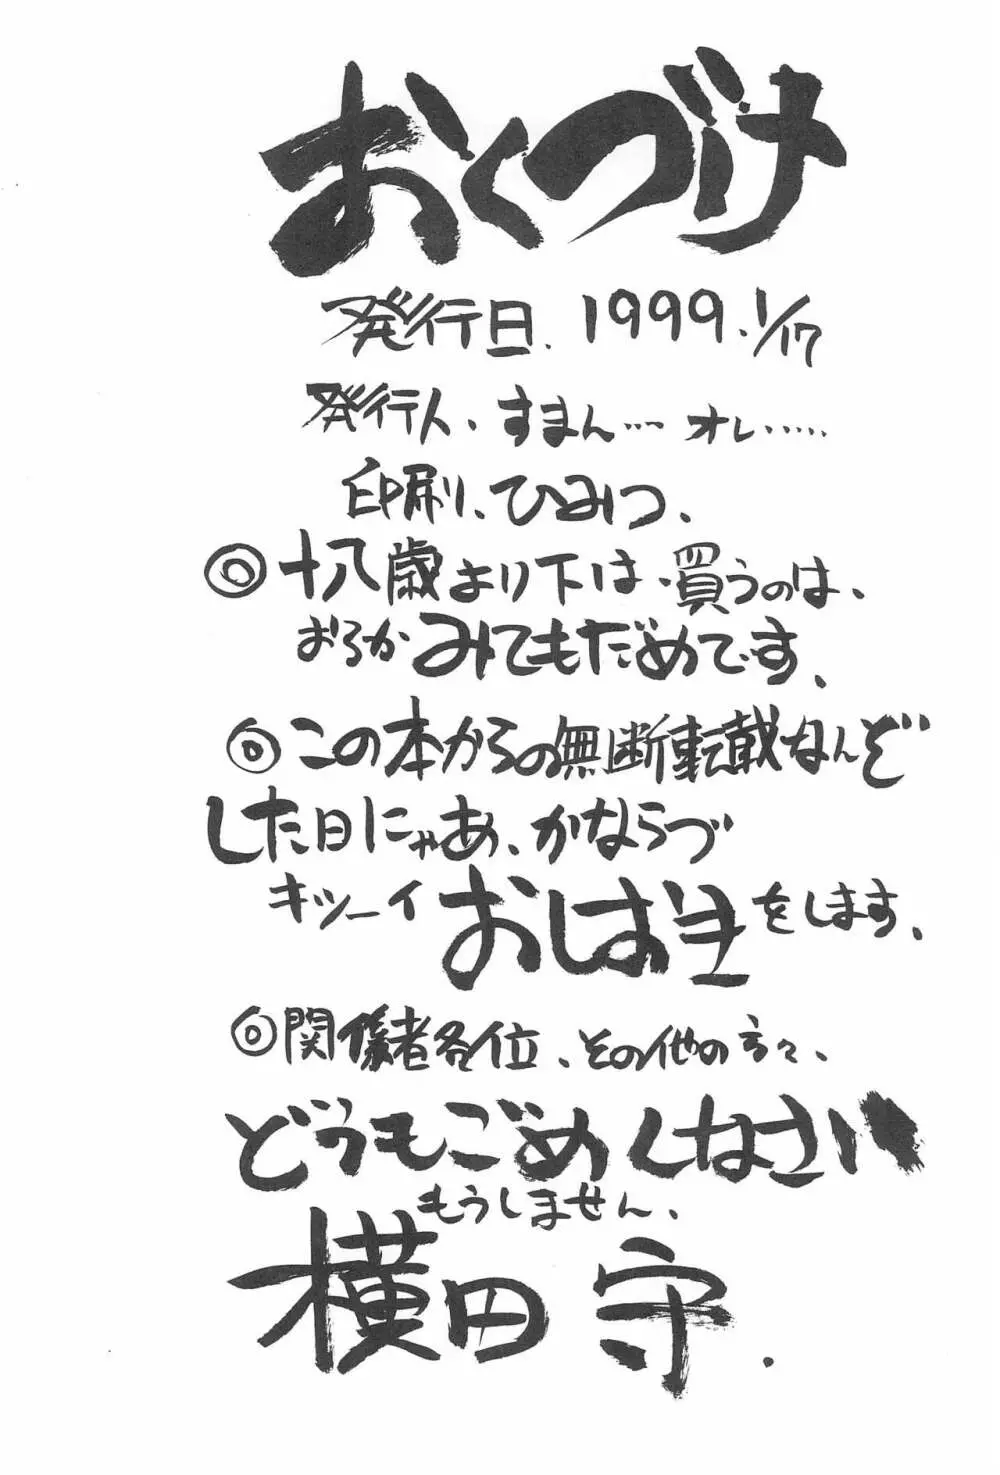 おくづけ
発行日. 1999. 1/17
発行人、すまん… オレ……
印刷、ひみつ、
◎十八歳より下は、買うのは、
おろかみてもだめです、
◎この本からの無断転載なんぞ
した日にゃあ、かならづ
キツーイおしおきをします、
◎関係者各位、その他の方々、
どうもごめんなさい
もうしません、
横田 守.